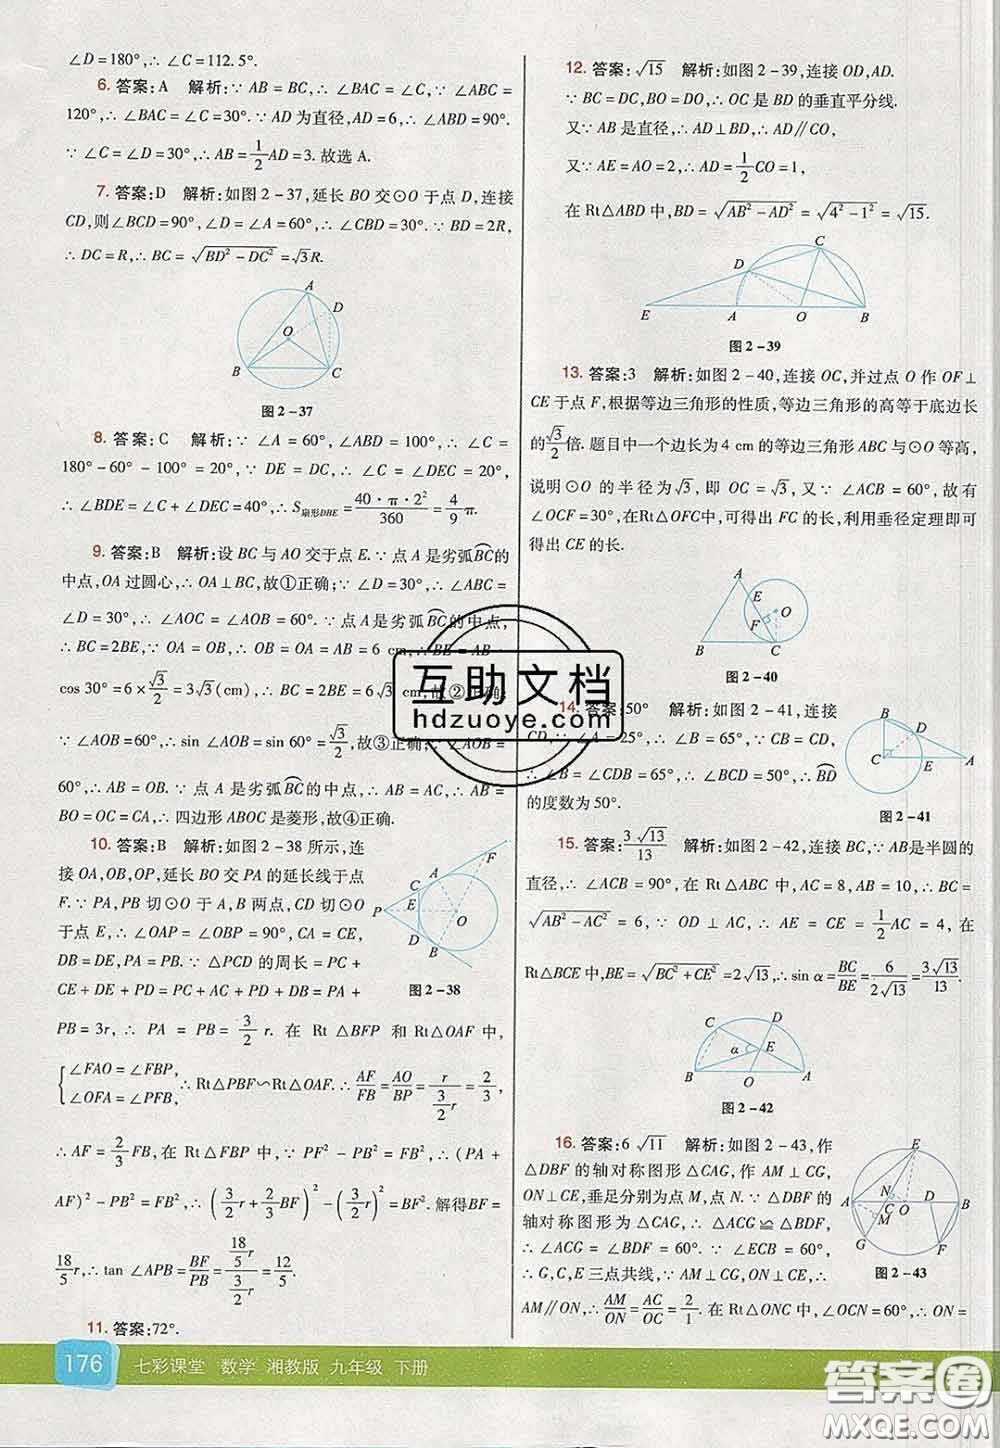 ∠D=180°,∴∠C=112.5°.
6. 答案:A 解析:∵AB=BC,∴∠BAC=∠C,∵∠ABC=
120°,∴∠BAC=∠C=30°.∵AD为直径,AD=6,∴∠ABD=90°.
∵∠C=∠D=30°,∴AB=1/2AD=3.故选A.
7. 答案:D 解析:如图2-37,延长BO交⊙O于点D,连接
CD,则∠BCD=90°,∠D=∠A=60°,∴∠CBD=30°.∵BD=2R,
∴DC=R,∴BC=√(BD²-DC²)=√3R.
A
D
O
B
C
图2-37
8. 答案:C 解析:∵∠A=60°,∠ABD=100°,∴∠C=
180°-60°-100°=20°,∵DE=DC,∴∠C=∠DEC=20°,
∴∠BDE=∠C+∠DEC=40°,∴S扇形DBE=40·π·2²/360=4/9π.
9. 答案:B 解析:设BC与AO交于点E.∵点A是劣弧BC的
中点,OA过圆心,∴OA⊥BC,故①正确;∵∠D=30°,∴∠ABC=
∠D=30°,∴∠AOC=∠AOB=60°,∵点A是劣弧BC的中点,
∴BC=2BE,∵OA=OB,∴OA=OB=AB=6 cm,∴BE=AB·
cos30°=6×√3/2=3√3(cm),∴BC=2BE=6√3 cm,故②正确;
∵∠AOB=60°,∴sin∠AOB=sin60°=√3/2,故③正确;∵∠AOB=
60°,∴AB=OB.∵点A是劣弧BC的中点,∴AB=AC=OA=
BO=OC=CA,∴四边形ABOC是菱形,故④正确.
10. 答案:B 解析:如图2-38所示,连
接OA,OB,OP,延长BO交PA的延长线于点
F.∵PA,PB切⊙O于A,B两点,CD切⊙O
于点E,∴∠OAP=∠OBP=90°,CA=CE,
DB=DE,PA=PB.∵△PCD的周长=PC+
CE+DE+PD=PC+AC+PD+DB=PA+
PB=3r,∴PA=PB=3/2r.在Rt△BFP和Rt△OAF中,
{∠FAO=∠FBP,
∠OFA=∠PFB,∴Rt△PBF∽Rt△OAF.∴AF/FB=AO/BP=r/(3/2r)=2/3,
∴AF=2/3FB,在Rt△FBP中,∵PF²-PB²=FB²,∴(PA+
AF)²-PB²=FB²,∴(3/2r+2/3BF)²-(3/2r)²=BF².解得BF=
18/5r,∴tan∠APB=BF/PB=(18/5r)/(3/2r)=12/5.
F
A
C
P
E
O
D
B
图2-38
11. 答案:72°.
12. 答案:√15 解析:如图2-39,连接OD,AD.
∵BC=DC,BO=DO,∴OC是BD的垂直平分线.
又∵AB是直径,∴AD⊥BD,∴AD∥CO,
又∵AE=AO=2,∴AD=1/2CO=1,
在Rt△ABD中,BD=√(AB²-AD²)=√(4²-1²)=√15.
C
D
E
A
O
B
图2-39
13. 答案:3 解析:如图2-40,连接OC,并过点O作OF⊥
CE于点F,根据等边三角形的性质,等边三角形的高等于底边长
的√3/2倍.题目中一个边长为4 cm的等边三角形ABC与⊙O等高,
说明⊙O的半径为√3,即OC=√3,又∵∠ACB=60°,故有
∠OCF=30°,在Rt△OFC中,可得出FC的长,利用垂径定理即可
得出CE的长.
A
E
O
F
B
C
图2-40
14. 答案:50° 解析:如图2-41,连接
CD,∵∠A=25°,∴∠B=65°,∵CB=CD,
∴∠B=∠CDB=65°,∴∠BCD=50°,∴BD
的度数为50°.
B
D
C
E
A
图2-41
15. 答案:3√13/13 解析:如图2-42,连接BC,∵AB是半圆的
直径,∴∠ACB=90°,在Rt△ABC中,AC=8,AB=10,∴BC=
√(AB²-AC²)=6,∵OD⊥AC,∴AE=CE=1/2AC=4,在
Rt△BCE中,BE=√(BC²+CE²)=2√13,∴sinα=BC/BE=6/(2√13)=3√13/13.
D
C
α
E
B
O
A
图2-42
16. 答案:6√11 解析:如图2-43,作
△DBF的轴对称图形△CAG,作AM⊥CG,
ON⊥CE,垂足分别为点M,点N.∵△DBF的
轴对称图形为△CAG,∴△ACG≌△BDF,
∴∠ACG=∠BDF=60°.∵∠ECB=60°,
∴G,C,E三点共线,∵AM⊥CG,ON⊥CE,∴
AM∥ON,∴AM/ON=AC/OC=2/1.在Rt△ONC中,∠OCN=60°,∴ON=
E
N
D
A
C
O
B
M
G
F
图2-43
互助文档
hdzuoye.com
176 七彩课堂 数学 湘教版 九年级 下册
答案圈
MXQE.COM